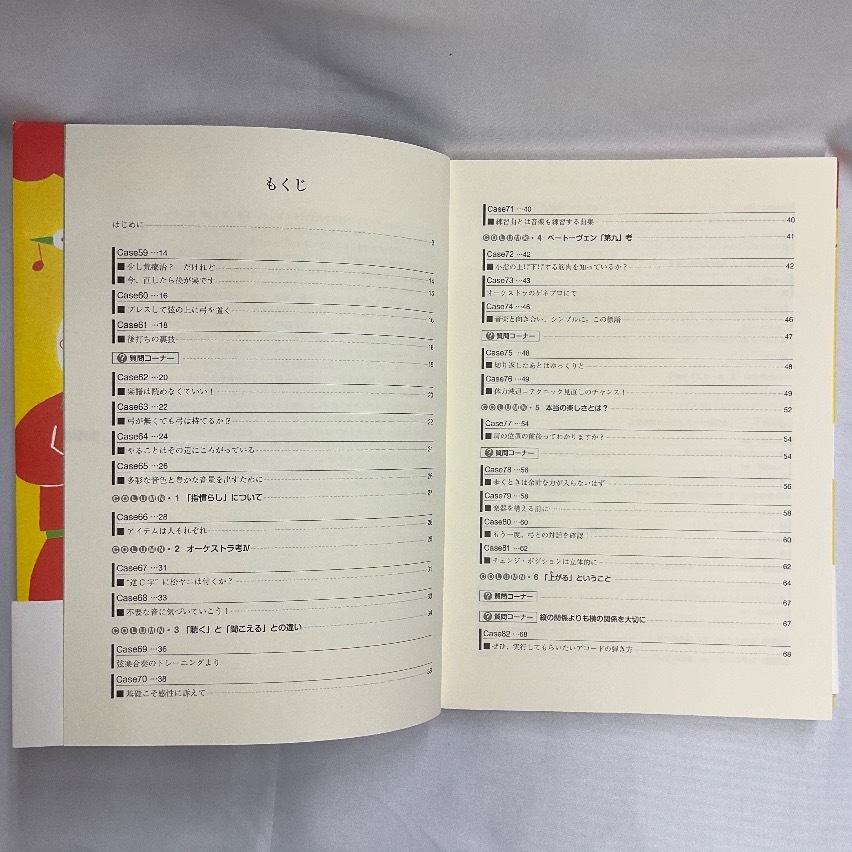 もくじ
はじめに
Case59 …14
■少し荒療治？　だけれど 14
■今、直したら後が楽です 15
Case60 …16
■プレスして弦の上に弓を置く 16
Case61 …18
■後打ちの裏技 18
？質問コーナー 19
Case62 …20
■楽譜は読めなくていい！
Case63 …22
■弓が無くても弓は持てるか？
Case64 …24
■やることはその辺にころがっている
Case65 …26
■多彩な音色と豊かな音量を出すために
COLUMN・1 「指慣らし」について
Case66 …28
■アイテムは人それぞれ
COLUMN・2 オーケストラ考Ⅳ
Case67 …31
■“逆C字”に松ヤニは付くか？
Case68 …33
■不要な音に気づいていこう！
COLUMN・3 「聴く」と「聞こえる」との違い
Case69 …36
弦楽合奏のトレーニングより
Case70 …38
■基礎こそ感性に訴えて
Case71 …40
■練習曲とは音楽も練習する曲集 40
COLUMN・4 ベートーヴェン「第九」考 41
Case72 …42
■小指の上げ下げする筋肉を知っているか？ 42
Case73 …43
オーケストラのゲネプロにて
Case74 …46
■音楽と向き合い、シンプルに、この標語 46
？質問コーナー 47
Case75 …48
■切り返したあとはゆっくりと 48
Case76 …49
■体力減退=テクニック見直しのチャンス！ 49
COLUMN・5 本当の楽しさとは？ 52
Case77 …54
■肩の位置の前後ってわかりますか？ 54
？質問コーナー 54
Case78 …56
■歩くときは余計な力が入らないはず 56
Case79 …58
■楽器を構える前に 58
Case80 …60
■もう一度、弓との対話を確認 60
Case81 …62
■チェンジ・ポジションは立体的に 62
COLUMN・6 「上がる」ということ 64
？質問コーナー 67
？質問コーナー 縦の関係よりも横の関係を大切に 67
Case82 …68
■ぜひ、実行してもらいたいアコードの弾き方 68